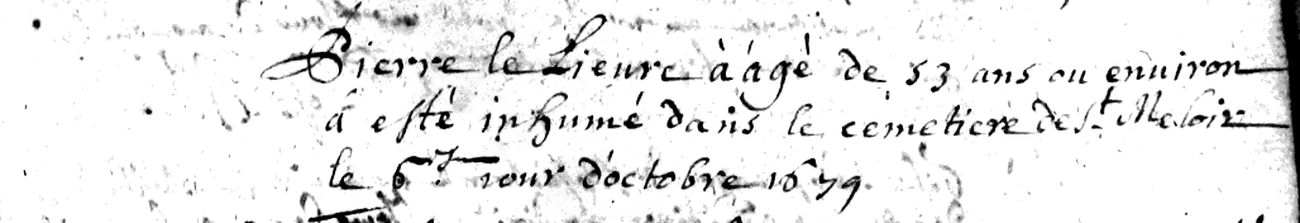 Pierre le Lieure à ágé de 53 ans ou environ
a esté inhumé dans le cemetiere de St Meloir
le 6.e iour d'octobre 1679